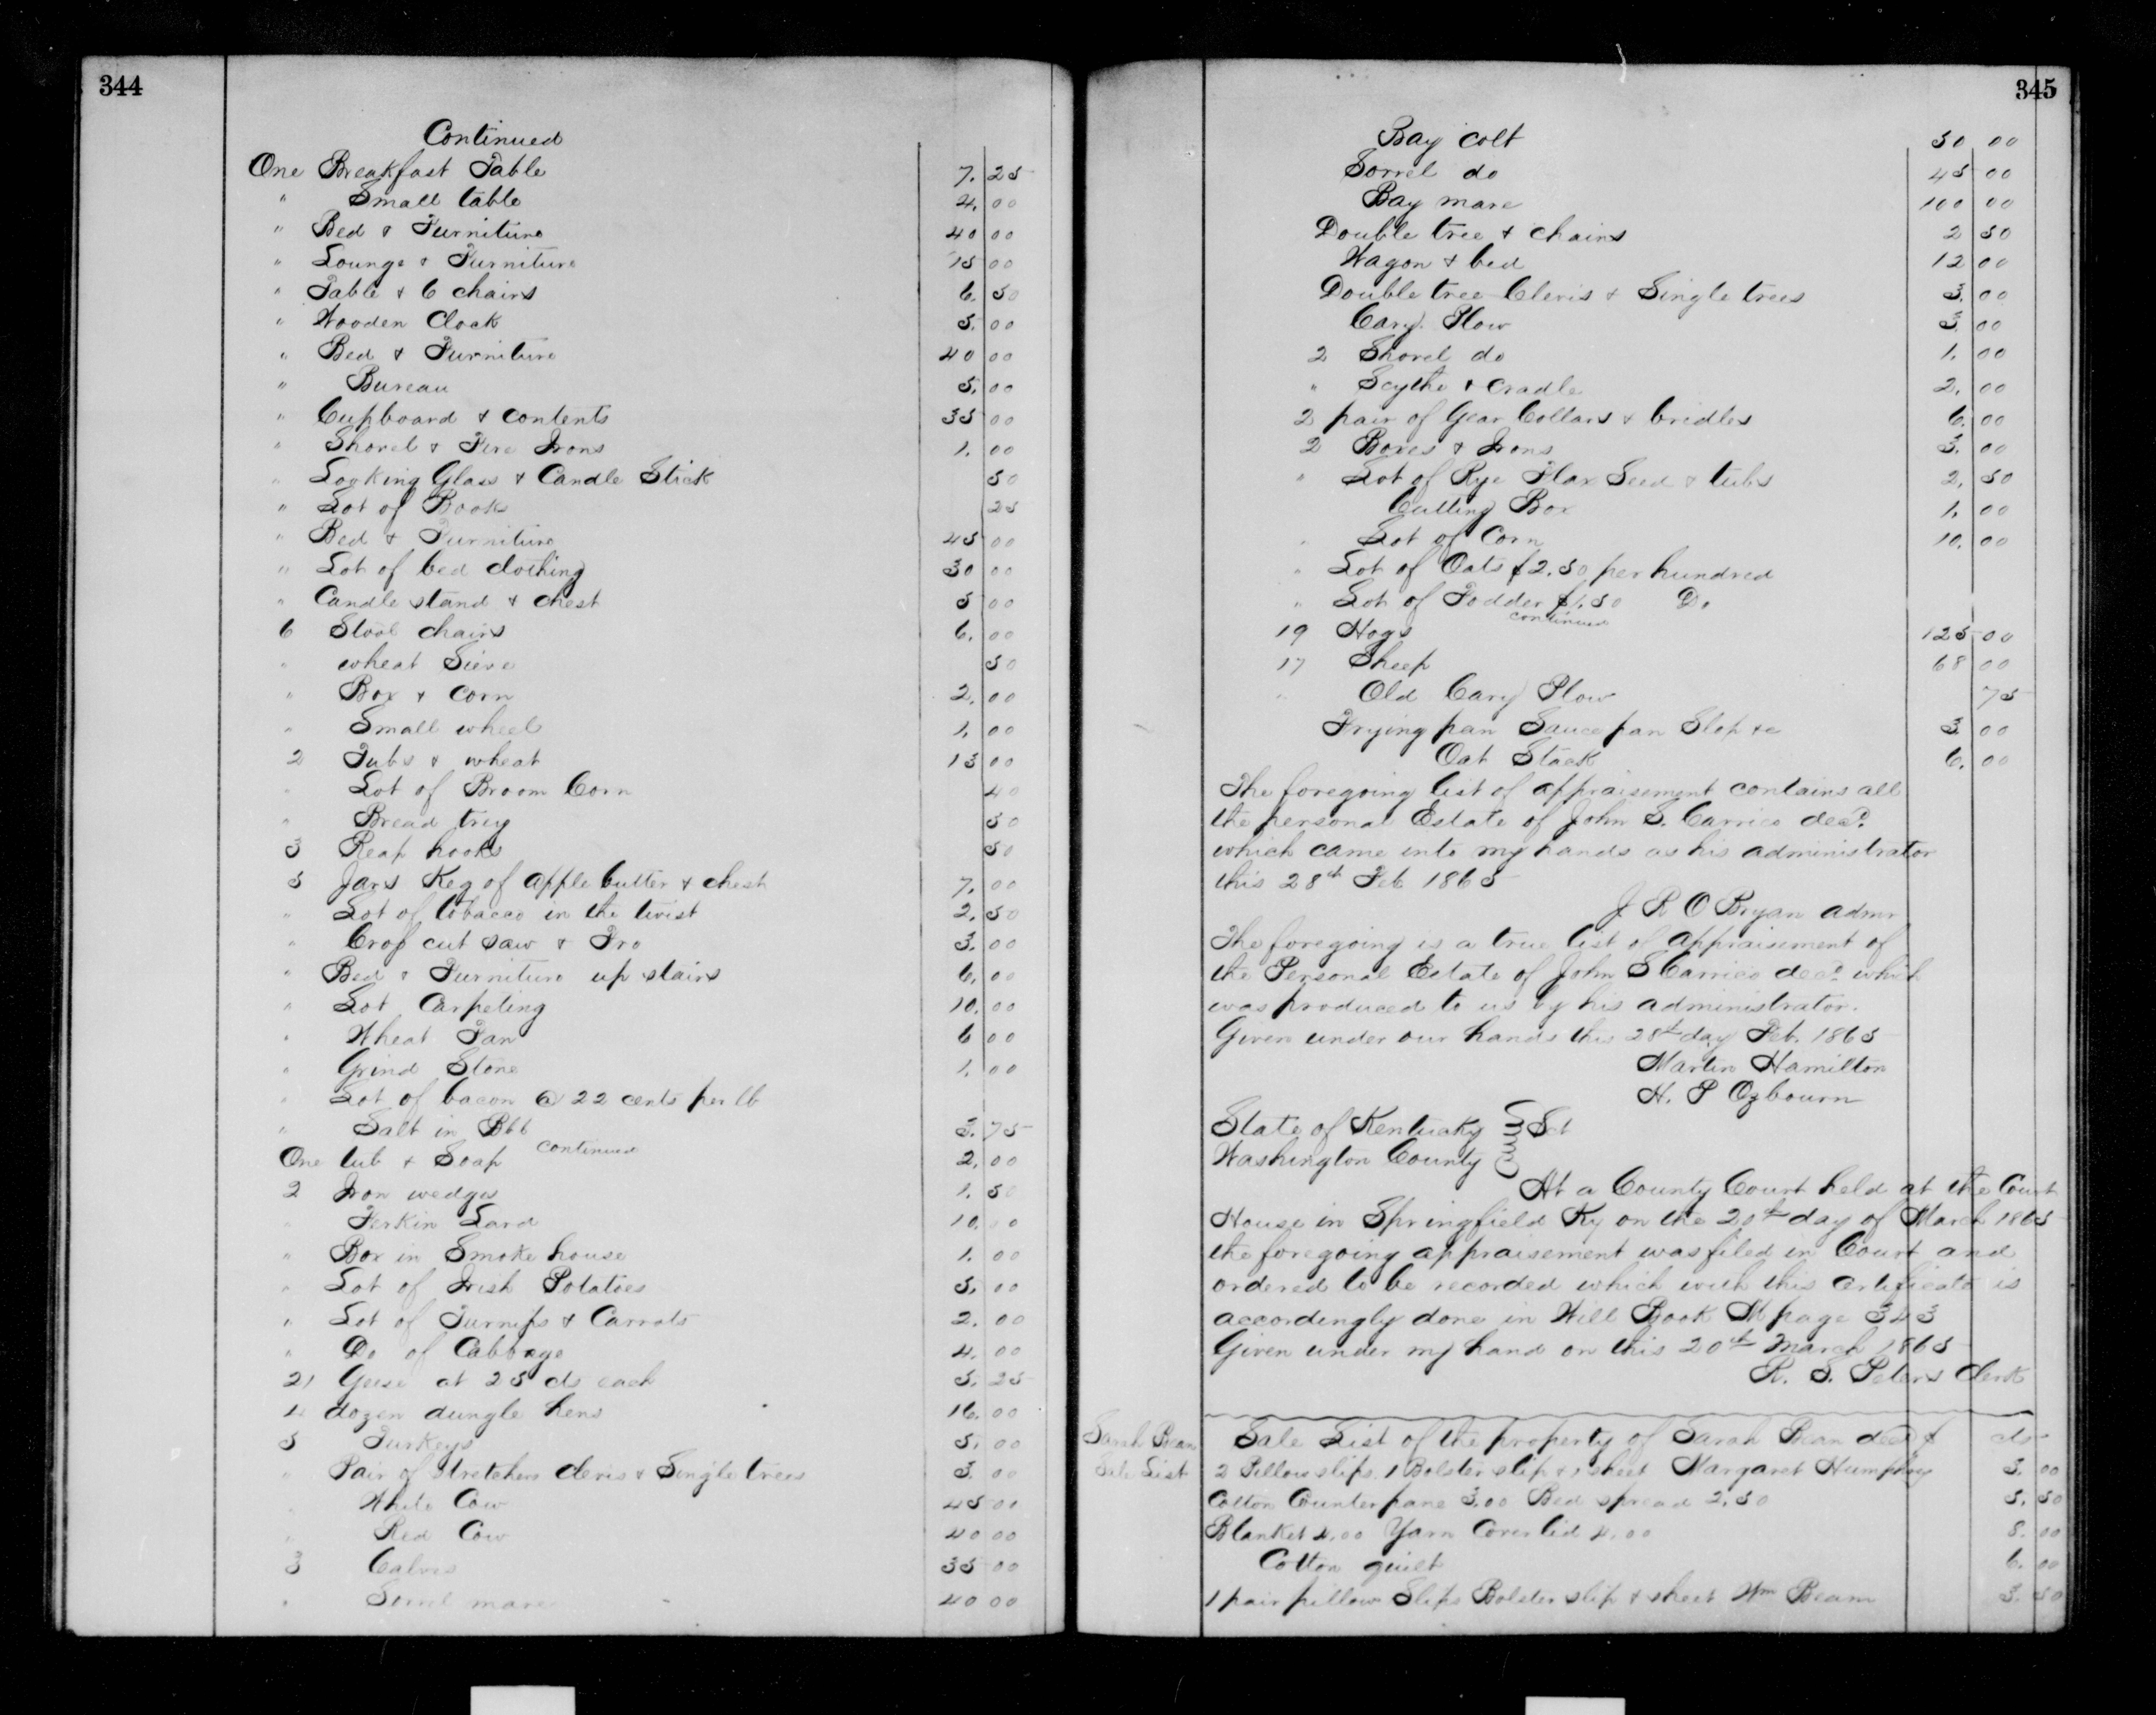 344
Continued
One Breakfast Table 7. 25
" Small table 4. 00
" Bed & Furniture 40 00
" Lounge & Furniture 15 00
" Table & 6 chairs 6. 50
" Wooden Clock 5. 00
" Bed & Furniture 40 00
" Bureau 5. 00
" Cupboard & contents 35 00
" Shovel & Fire Irons 1. 00
" Looking Glass & Candle Stick 50
" Lot of Books 25
" Bed & Furniture 45 00
" Lot of bed clothing 30 00
" Candle stand & chest 5 00
6 Stool chairs 6. 00
" wheat Sieve 50
" Box & corn 2. 00
" Small wheel 1. 00
2 Tubs & wheat 13 00
" Lot of Broom Corn 40
" Bread trey 50
3 Reap hooks 50
5 Jars Keg of apple butter & chest 7. 00
" Lot of tobacco in the twist 2. 50
" Crop cut saw & Fro 3. 00
" Bed & Furniture up stairs 6. 00
" Lot Carpeting 10. 00
" Wheat Fan 6 00
" Grind Stone 1. 00
" Lot of bacon @ 22 cents per lb
" Salt in Bbl 3. 75
continued
One tub & Soap 2. 00
2 Iron wedges 1. 50
" Ferkin Lard 10. 00
" Box in Smoke house 1. 00
" Lot of Irish Potatoes 5. 00
" Lot of Turnips & Carrots 2. 00
" Do of Cabbage 4. 00
21 Geese at 25 cts each 5. 25
4 dozen dungle hens 16. 00
5 Turkeys 5. 00
" Pair of Stretchers clevis & Single trees 3. 00
" White Cow 45 00
" Red Cow 40 00
3 Calves 35 00
" Sorrel mare 40 00
345
Bay colt 50 00
Sorrel do 45 00
Bay mare 100 00
Double tree & chains 2 50
Wagon & bed 12 00
Double tree Clevis & Single trees 3. 00
Cary Plow 3. 00
2 Shovel do 1. 00
" Scythe & Cradle 2. 00
2 pair of Gear Collars & bridles 6. 00
2 Boxes & Irons 3. 00
" Lot of Rye Flax Seed & tubs 2. 50
Cutting Box 1. 00
" Lot of Corn 10. 00
" Lot of Oats $2.50 per hundred
" Lot of Fodder $1.50 Do
continued
19 Hogs 125 00
17 Sheep 68 00
" Old Cary Plow 75
Frying pan Sauce pan Slop &c 3 00
Oat Stack 6. 00
The foregoing list of appraisement contains all
the personal Estate of John S. Carrico decd.
which came into my hands as his administrator
this 28th Feb 1865
J R O Bryan admr
The foregoing is a true list of appraisement of
the Personal Estate of John S Carrico decd which
was produced to us by his administrator.
Given under our hands this 28th day Feb. 1865
Martin Hamilton
H. P Ozbourn
State of Kentucky Sct
Washington County
At a County Court held at the Court
House in Springfield Ky on the 20th day of March 1865
the foregoing appraisement was filed in Court and
ordered to be recorded which with this certificate is
accordingly done in Will Book M page 343
Given under my hand on this 20th March 1865
R. S. Peters Clerk
Sarah Bean Sale List
Sale List of the property of Sarah Bean decd $ cts
2 Pillow slips 1 Bolster slip & 1 sheet Margaret Humphrey 3. 00
Cotton Counterpane 3.00 Bed spread 2.50 5. 50
Blanket 4.00 Yarn Coverlid 4.00 8. 00
Cotton quilt 6. 00
1 pair pillow Slips Bolster slip & sheet Wm Beam 3. 50